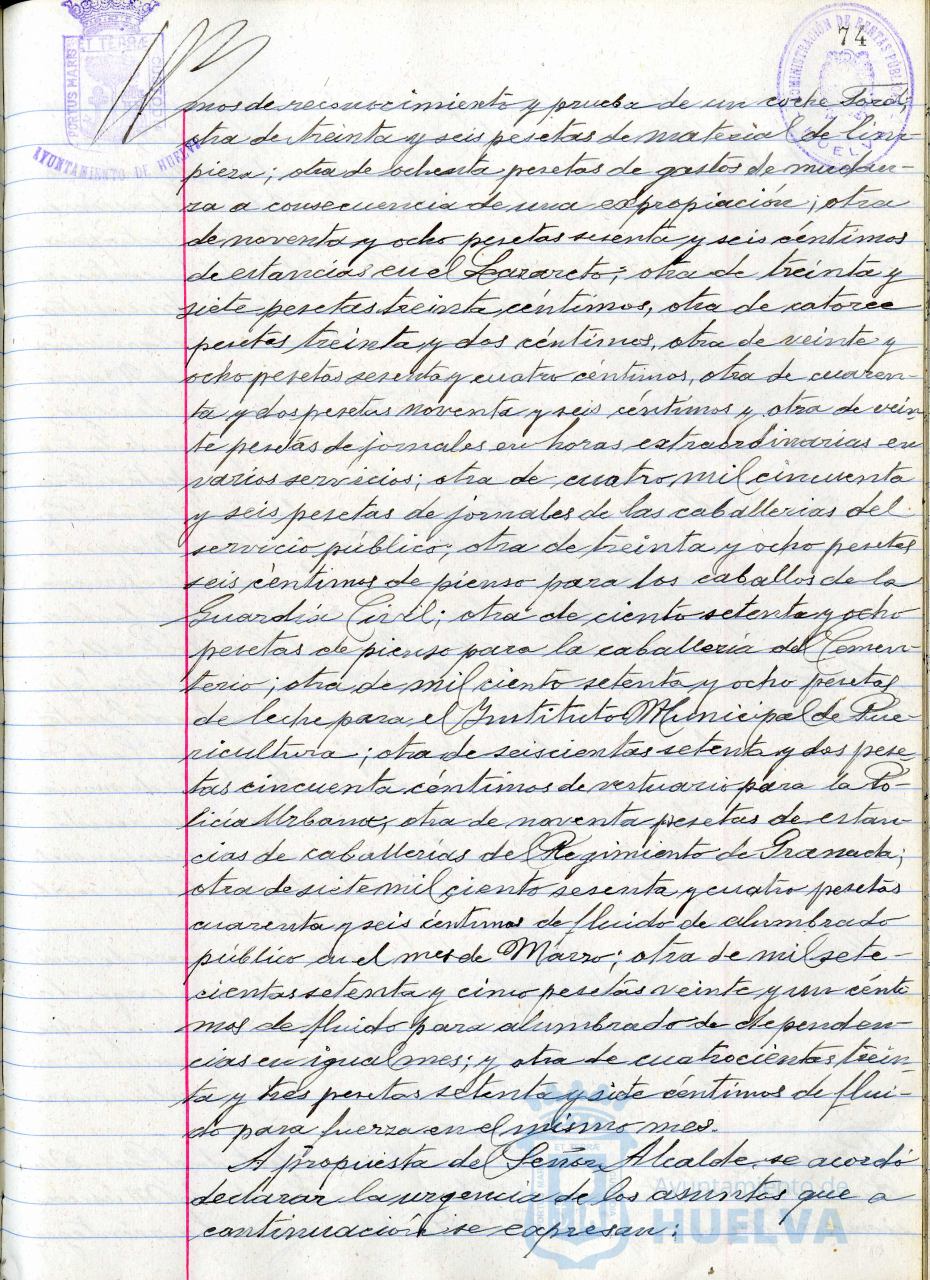 74
PORTUS MARIS
ET TERRÆ
CUSTODIA
AYUNTAMIENTO DE HUELVA
ADMINISTRACIÓN DE RENTAS PÚBLICAS
HUELVA
mos de reconocimiento y prueba de un coche Ford;
otra de treinta y seis pesetas de material de lim-
pieza; otra de ochenta pesetas de gastos de mudan-
za a consecuencia de una expropiación; otra
de noventa y ocho pesetas sesenta y seis céntimos
de estancias en el Lazareto; otra de treinta y
siete pesetas treinta céntimos, otra de catorce
pesetas treinta y dos céntimos, otra de veinte y
ocho pesetas sesenta y cuatro céntimos, otra de cuaren-
ta y dos pesetas noventa y seis céntimos y otra de vein-
te pesetas de jornales en horas extraordinarias en
varios servicios; otra de cuatro mil cincuenta
y seis pesetas de jornales de las caballerias del
servicio público; otra de treinta y ocho pesetas
seis céntimos de pienso para los caballos de la
Guardia Civil; otra de ciento setenta y ocho
pesetas de pienso para la caballería del Cemen-
terio; otra de mil ciento setenta y ocho pesetas
de leche para el Instituto Municipal de Pue-
ricultura; otra de seiscientas setenta y dos pese-
tas cincuenta céntimos de vestuario para la Po-
licia Urbana; otra de noventa pesetas de estan-
cias de caballerías de Regimiento de Granada;
otra de siete mil ciento sesenta y cuatro pesetas
cuarenta y seis céntimos de fluido de alumbrado
público en el mes de Marzo; otra de mil sete-
cientas setenta y cinco pesetas veinte y un cénti
mos de fluido para alumbrado de dependen-
cias en igual mes; y otra de cuatrocientas trein-
ta y tres pesetas setenta y siete céntimos de flui-
do para fuerza en el mismo mes.
A propuesta del Señor Alcalde, se acordó
declarar la urgencia de los asuntos que a
continuación se expresan:
Ayuntamiento de
HUELVA